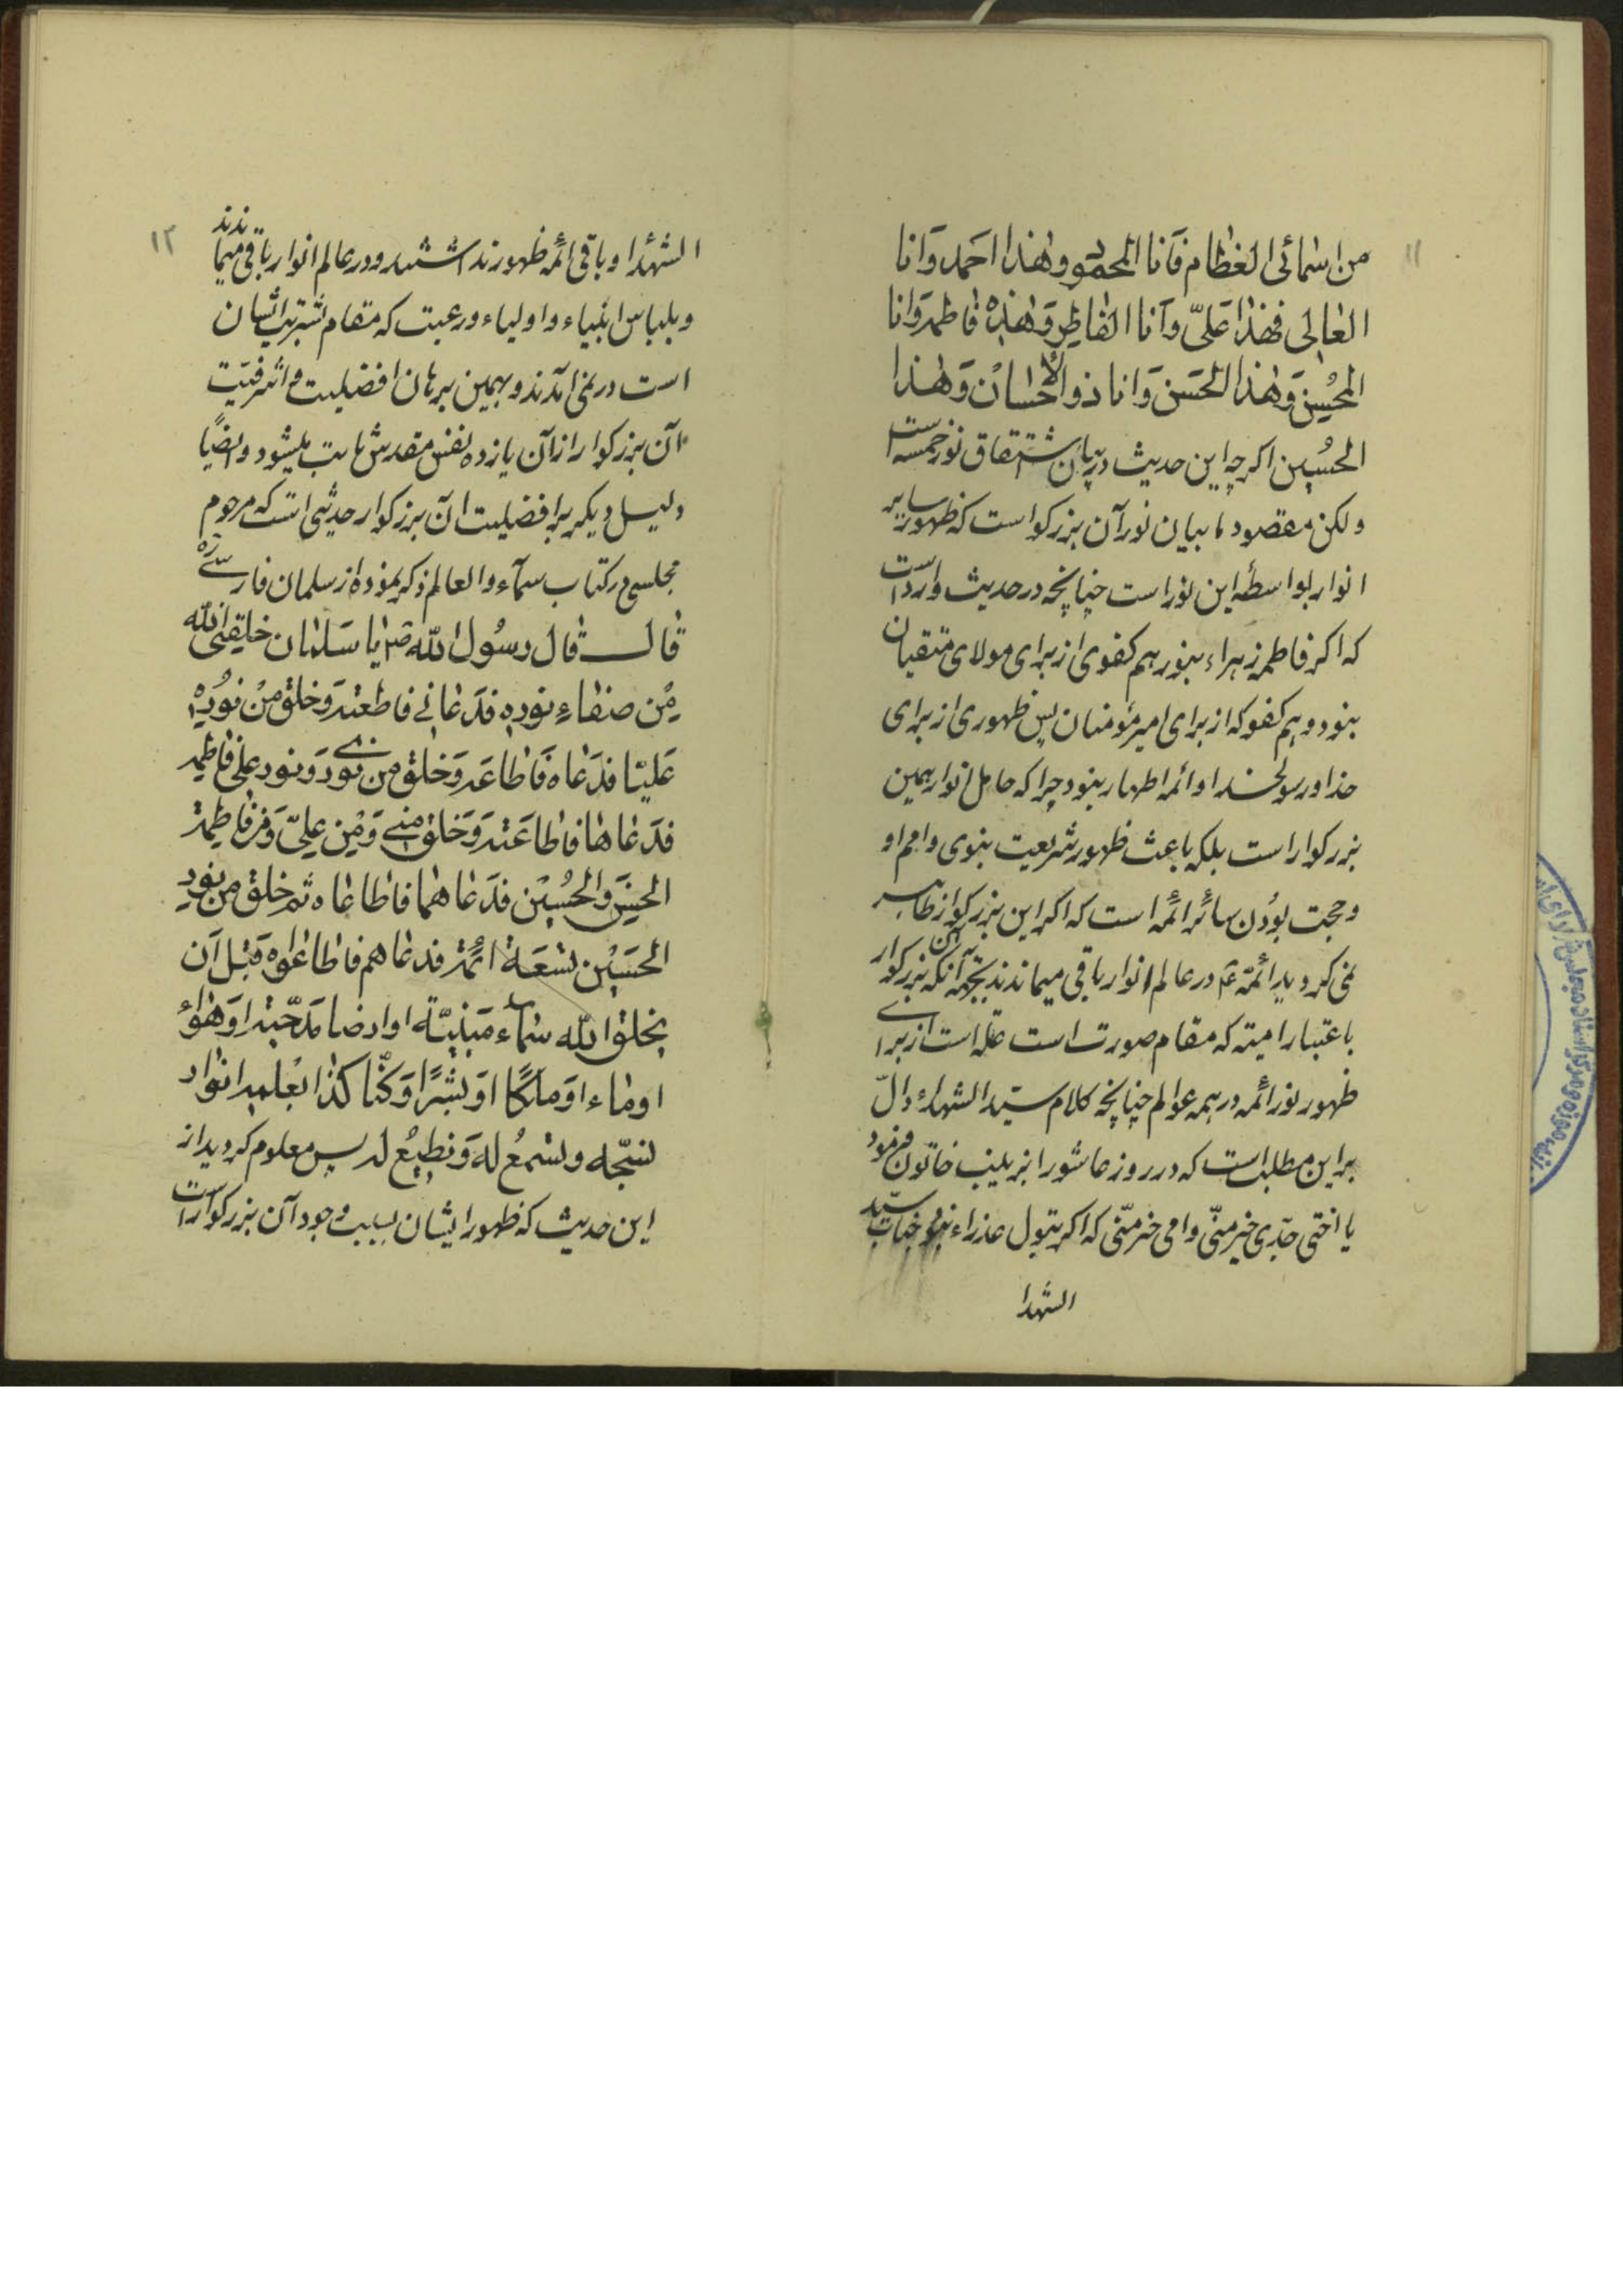 ۱۱
من اسمائی العظام فانا المحمود وهذا احمد وانا
العالی فهذا علیّ وانا الفاطر وهذه فاطمة وانا
المحسن وهذا الحسن وانا ذو الاحسان وهذا
الحسین اکرچه این حدیث در بیان اشتقاق نور خمسه است
ولکن مقصود ما بیان نور آن بزرکوار است که ظهور سایر
انوار بواسطهٔ این نور است چنانچه در حدیث وارد است
که اکر فاطمه زهراء نبود هم کفوی از برای مولای متقیان
نبود و هم کفو که از برای امیر مؤمنان پس ظهوری از برای
خدا و رسولخدا و ائمه اطهار نبود چرا که حامل انوار همین
بزرکوار است بلکه باعث ظهور شریعت نبوی و امم او
وحجت بودن سائر ائمه است که اکر این بزرکوار ظاهر
نمی کردید ائمّه ع در عالم انوار باقی میماندند بجهة آنکه آن بزرکوار
باعتبار امیته که مقام صورت است علة است از برای
ظهور نور ائمه در همه عوالم چنانچه کلام سید الشهداء دالّ
براین مطلب است که در روز عاشورا بزینب خاتون فرمود
یا اختی جدّی خیر منّی وامی خیر منّی که اکر بتول عذراء نبود جناب سیّد
الشهدا
۱۲
الشهدا و باقی ائمه ظهور نداشتند و در عالم انوار باقی میماندند
و بلباس انبیاء و اولیاء و رعیت که مقام بشریت ایشان
است در نمی آمدند و بهمین برهان افضلیت و اشرفیّت
آن بزرکوار از آن یازده نفس مقدس ثابت میشود و ایضًا
دلیل دیکر بر افضلیت آن بزرکوار حدیثی است که مرحوم
مجلسی در کتاب سمآء والعالم ذکر نموده از سلمان فارسی ره
قال قال رسول الله ص یا سلمان خلقنی الله
من صفاء نوره فدعانی فاطعته وخلق من نوری
علیّا فدعاه فاطاعه وخلق من نوری ونور علی فاطمة
فدعاها فاطاعته وخلق منی ومن علیّ ومن فاطمة
الحسن والحسین فدعاهما فاطاعاه ثم خلق من نور
الحسین تسعة ائمة فدعاهم فاطاعوه قبل ان
یخلق الله سماء مبنیّة او ارضا مدحیّة او هواء
او ماء او ملکًا او بشرًا وکنّا کذا بعلمه انوار
نسبّحه ونسمع له ونطیع له پس معلوم کردید از
این حدیث که ظهور ایشان بسبب وجود آن بزرکوار است